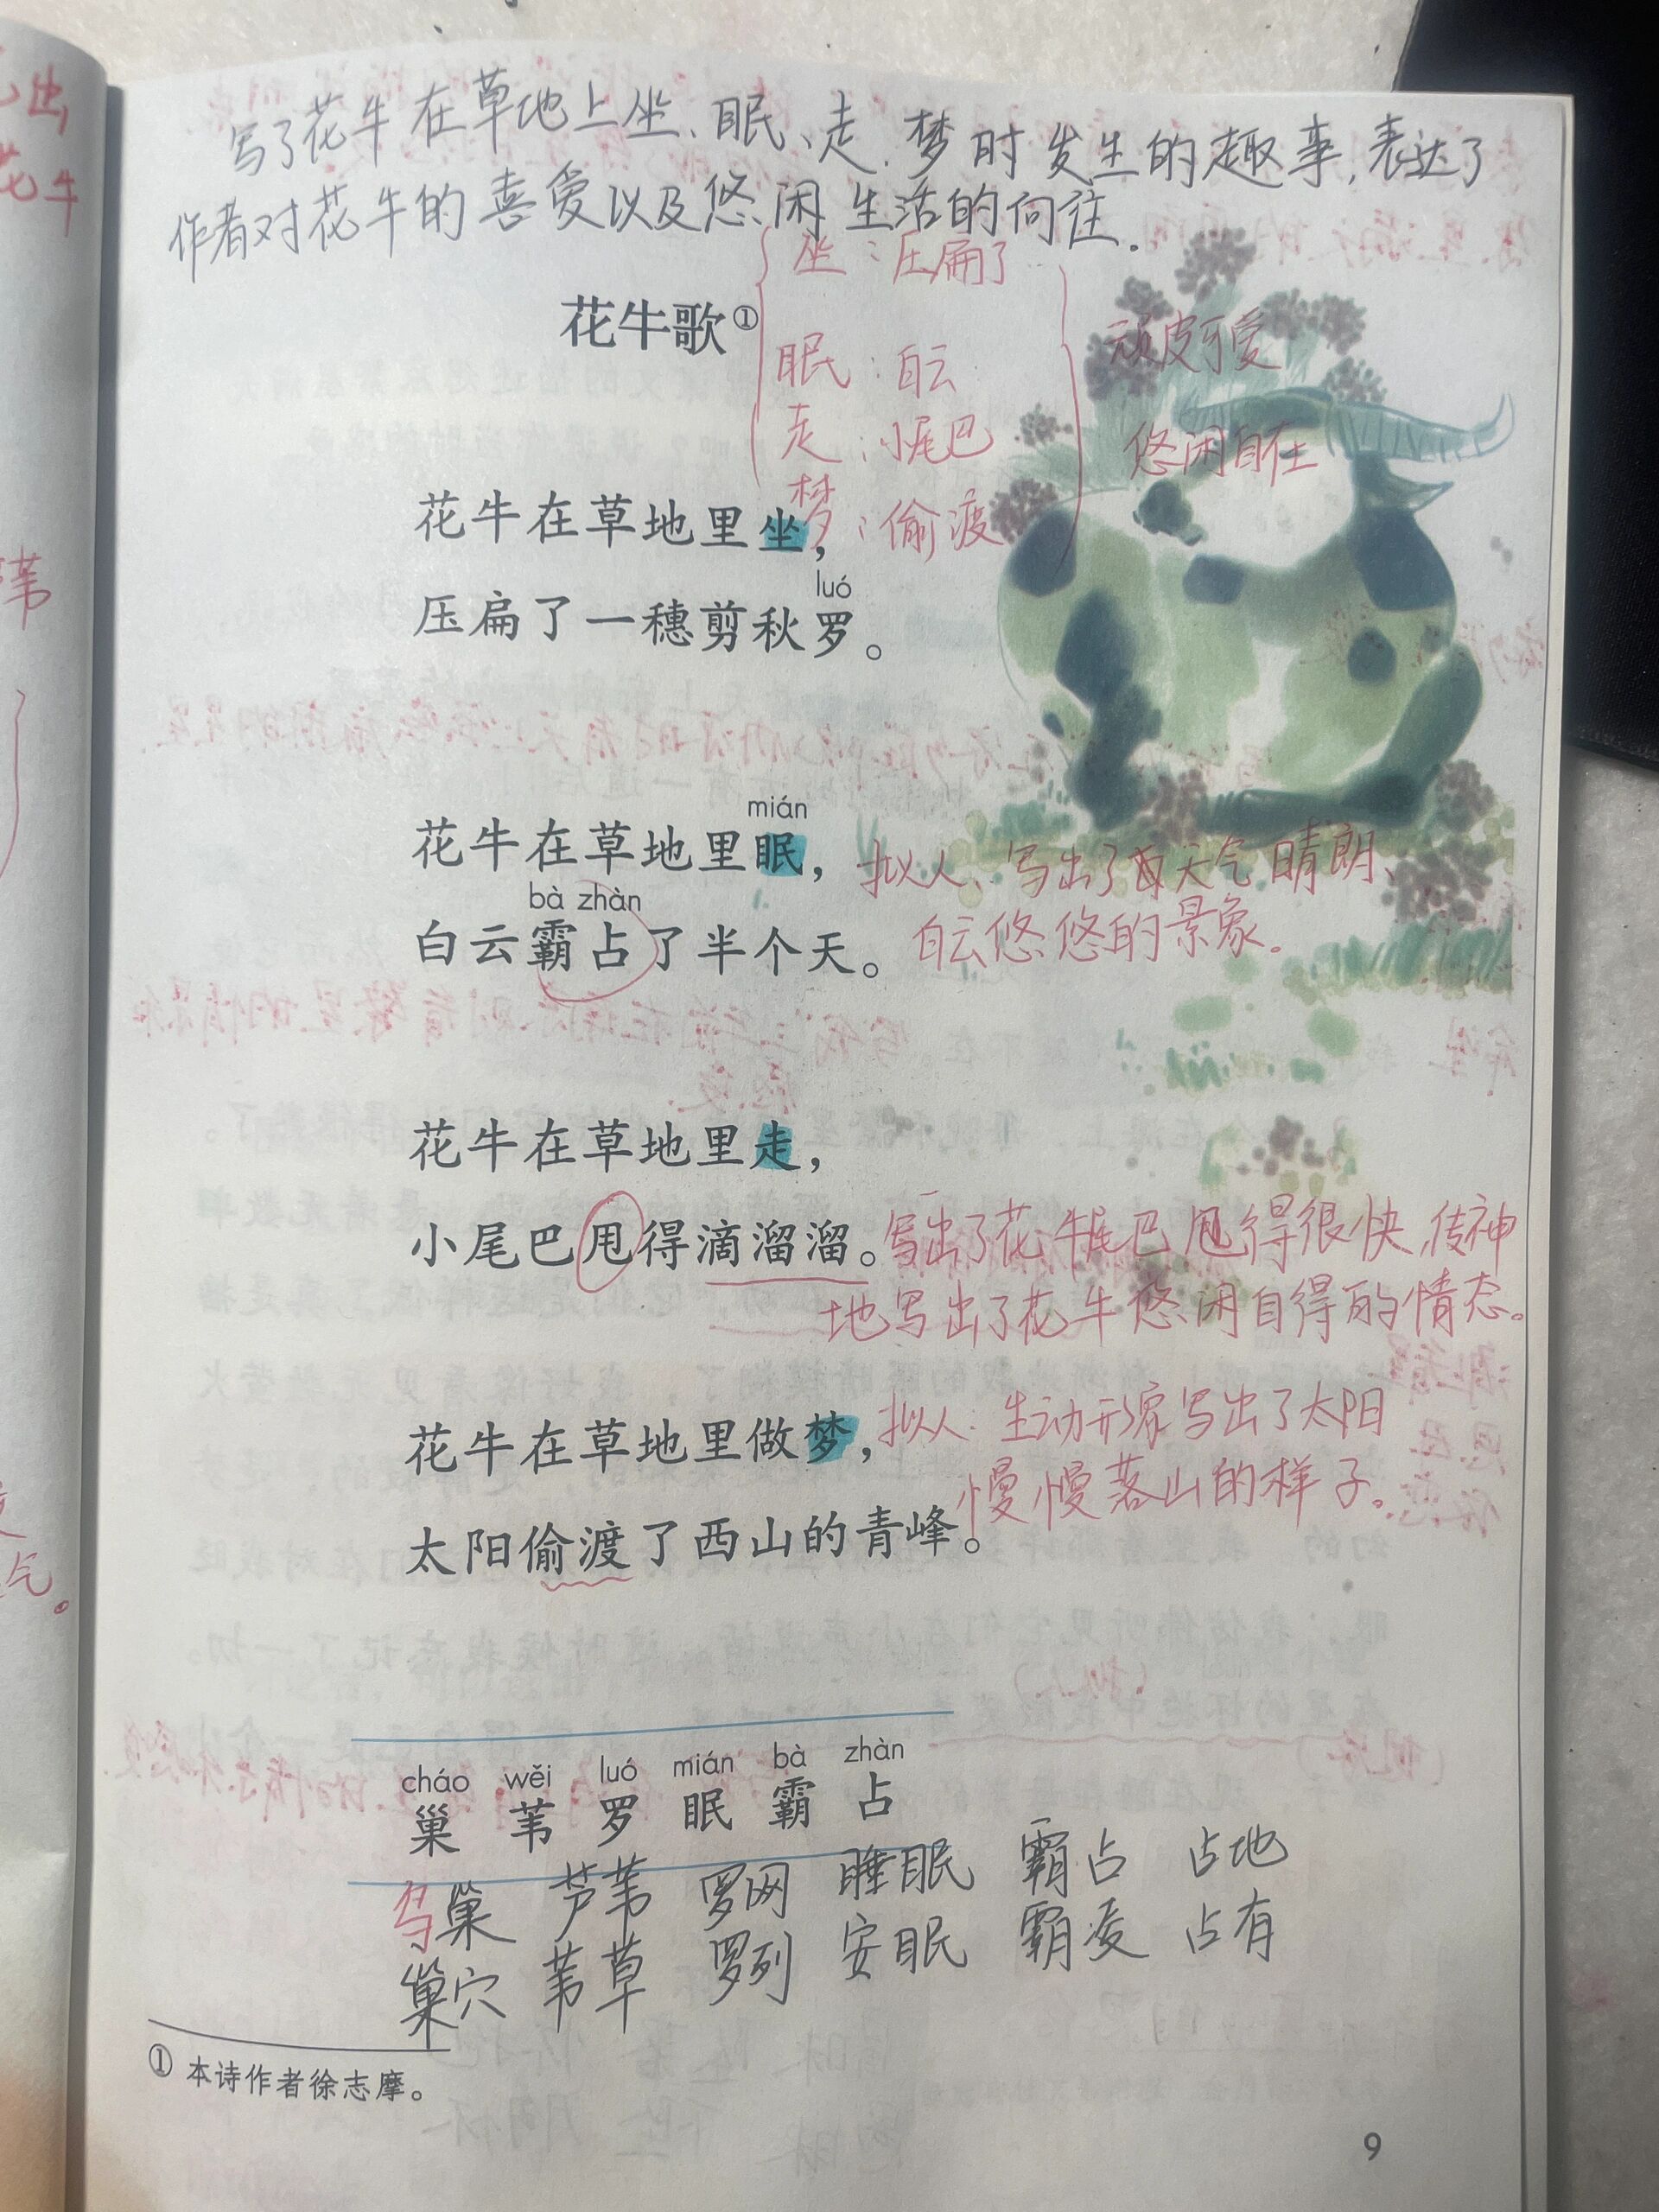 写了花牛在草地上坐、眠、走、梦时发生的趣事,表达了
作者对花牛的喜爱以及悠闲生活的向往.
花牛歌①
坐：压扁了
眠：白云
走：小尾巴
梦：偷渡
顽皮可爱
悠闲自在
花牛在草地里坐，
luó
压扁了一穗剪秋罗。
mián
花牛在草地里眠，
拟人、写出了天气晴朗、
白云悠悠的景象。
bà zhàn
白云霸占了半个天。
花牛在草地里走，
小尾巴甩得滴溜溜。
写出了花牛尾巴甩得很快,传神
地写出了花牛悠闲自得的情态。
花牛在草地里做梦，
拟人：生动形象写出了太阳
慢慢落山的样子。
太阳偷渡了西山的青峰。
cháo wěi luó mián bà zhàn
巢 苇 罗 眠 霸 占
鸟巢 芦苇 罗网 睡眠 霸占 占地
巢穴 苇草 罗列 安眠 霸凌 占有
① 本诗作者徐志摩。
9
出
花牛
苇
气。